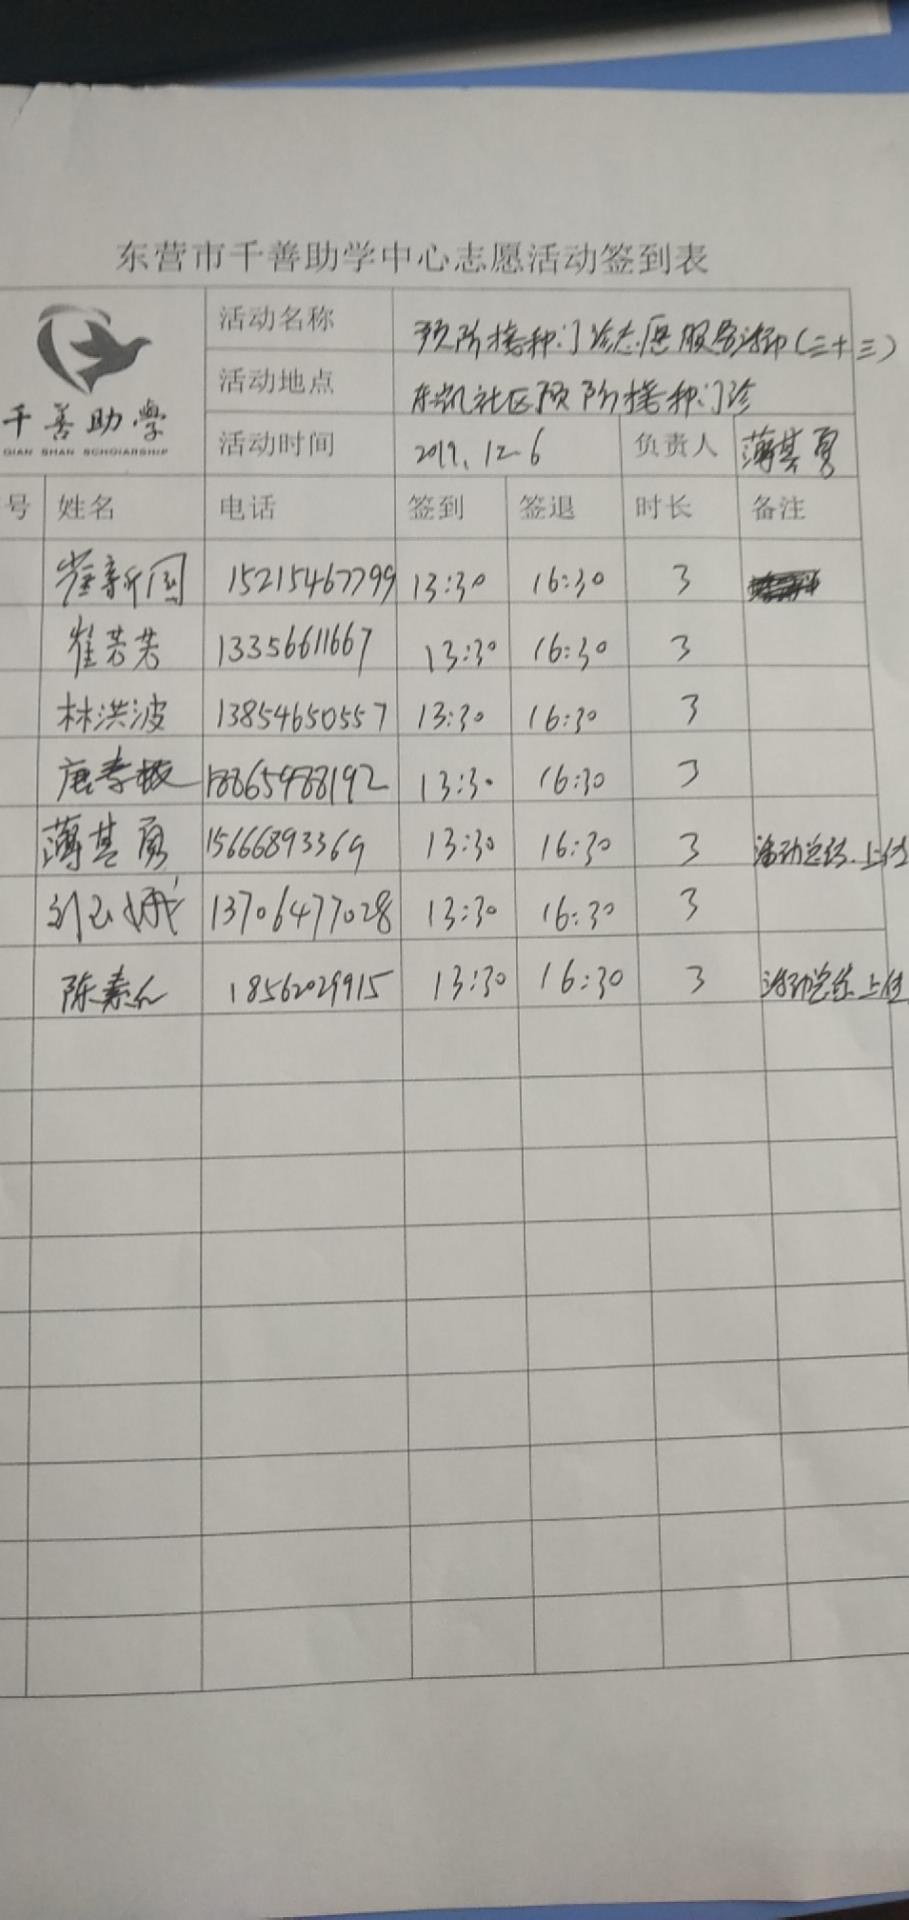 东营市千善助学中心志愿活动签到表
千善助學
QIAN SHAN SCHOIARSHIP
活动名称 预防接种门诊志愿服务活动(三十三)
活动地点 东凯社区预防接种门诊
活动时间 2019.12.6 负责人 薄其勇
号 姓名 电话 签到 签退 时长 备注
崔新国 15215467799 13:30 16:30 3
崔芳芳 13356611667 13:30 16:30 3
林洪波 13854650557 13:30 16:30 3
唐孝 18865988192 13:30 16:30 3
薄其勇 15666893369 13:30 16:30 3 活动总结.上传
刘玉娥 13706477028 13:30 16:30 3
陈素 18562029915 13:30 16:30 3 活动总结上传